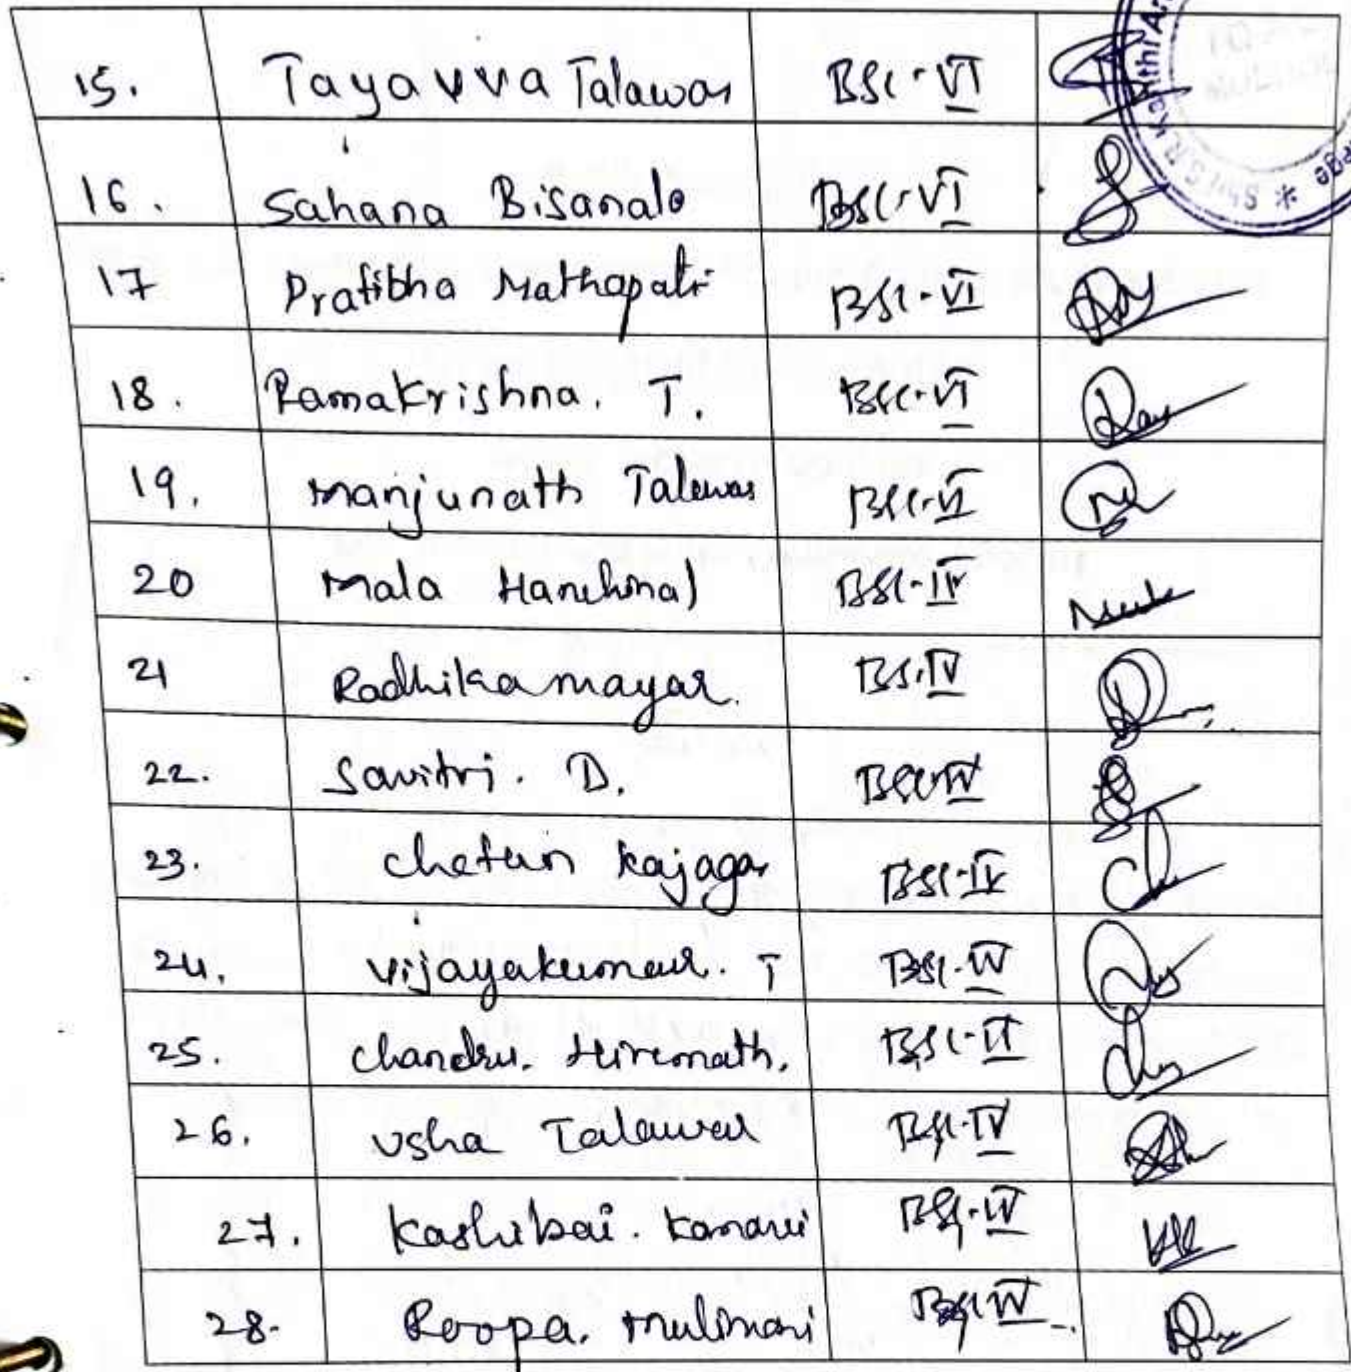 15. Tayavva Talawar BSC-VI
16. Sahana Bisanale BSC-VI
17 Pratibha Mathapati BSC-VI
18. Ramakrishna. T. BSC-VI
19. Manjunath Talawar BSC-VI
20 Mala Hanchinal BSC-IV
21 Radhika mayar. BS.IV
22. Savitri. D. BSC-IV
23. chetan kajagar BSC-IV
24. vijayakumar. T BSC-IV
25. chandru. Hiremath. BSC-VI
26. Usha Talawar BSC-IV
27. kashibai. kanavi BSC-IV
28. Roopa. mulimani BSC-IV